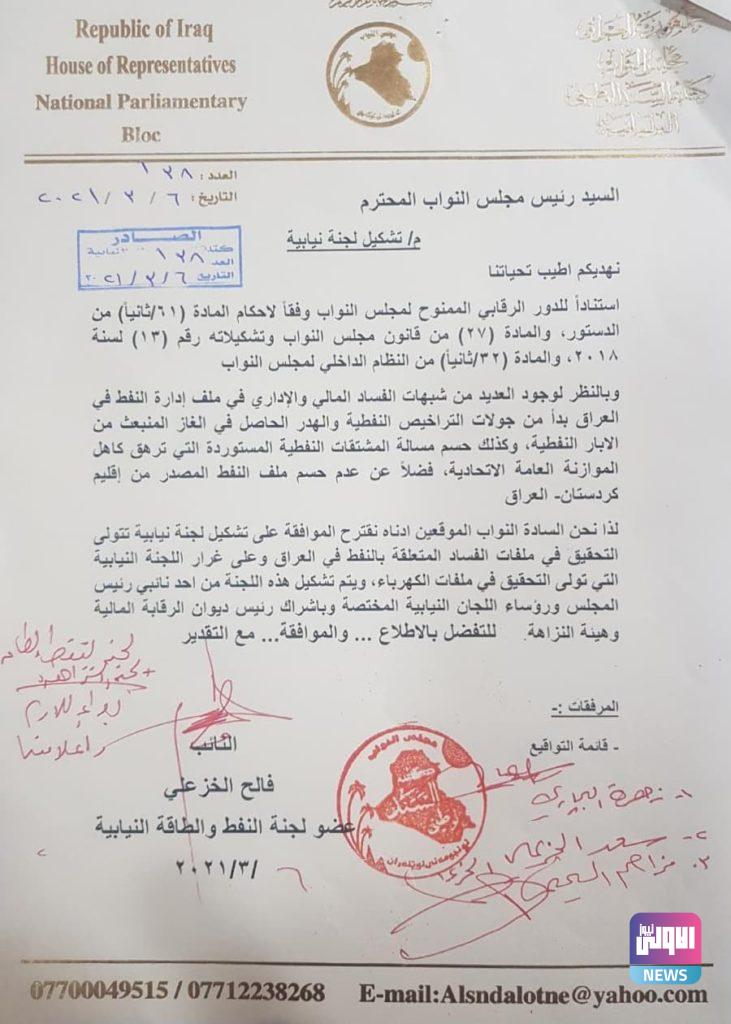 Republic of Iraq
House of Representatives
National Parliamentary
Bloc
جمهورية العراق
مجلس النواب
كتلة السند الوطني
البرلمانية
مجلس النواب
العدد : ١٣٨
التاريخ : ٦ / ٣ / ٢٠٢١
الصـــادر
العدد ١٣٨
التاريخ ٦ / ٣ / ٢٠٢١
السيد رئيس مجلس النواب المحترم
م/ تشكيل لجنة نيابية
نهديكم اطيب تحياتنا
استناداً للدور الرقابي الممنوح لمجلس النواب وفقاً لاحكام المادة (٦١/ثانياً) من
الدستور، والمادة (٢٧) من قانون مجلس النواب وتشكيلاته رقم (١٣) لسنة
٢٠١٨، والمادة (٣٢/ثانياً) من النظام الداخلي لمجلس النواب
وبالنظر لوجود العديد من شبهات الفساد المالي والإداري في ملف إدارة النفط في
العراق بدأ من جولات التراخيص النفطية والهدر الحاصل في الغاز المنبعث من
الابار النفطية، وكذلك حسم مسالة المشتقات النفطية المستوردة التي ترهق كاهل
الموازنة العامة الاتحادية، فضلاً عن عدم حسم ملف النفط المصدر من إقليم
كردستان- العراق
لذا نحن السادة النواب الموقعين ادناه نقترح الموافقة على تشكيل لجنة نيابية تتولى
التحقيق في ملفات الفساد المتعلقة بالنفط في العراق وعلى غرار اللجنة النيابية
التي تولى التحقيق في ملفات الكهرباء، ويتم تشكيل هذه اللجنة من احد نائبي رئيس
المجلس ورؤساء اللجان النيابية المختصة وباشراك رئيس ديوان الرقابة المالية
وهيئة النزاهة. للتفضل بالاطلاع ... والموافقة... مع التقدير
المرفقات :-
- قائمة التواقيع
النائب
فالح الخزعلي
عضو لجنة النفط والطاقة النيابية
٦ /٢٠٢١/٣
مجلس النواب
١- زهرة البجاري
٢- سعد
٣- مزاحم
الاولى نيوز
NEWS
07700049515 / 07712238268 E-mail:Alsndalotne@yahoo.com